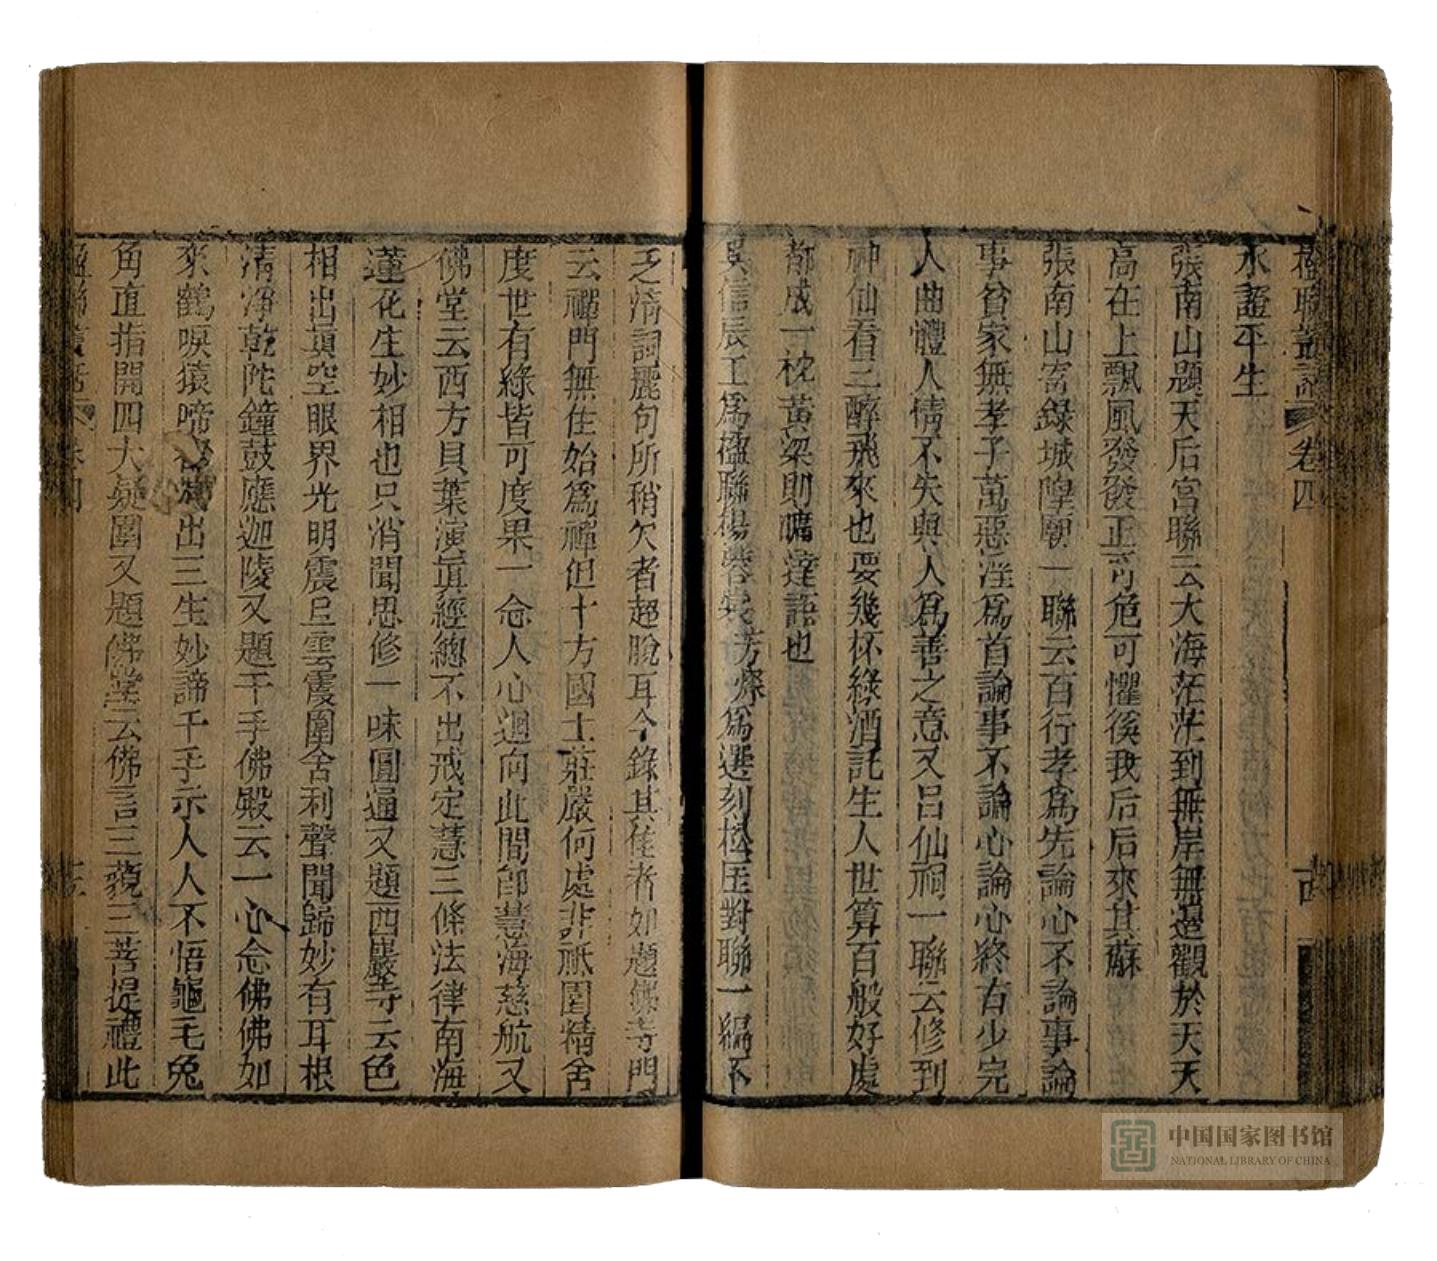 楹聯叢話 卷四
永證平生
張南山題天后宮聯云大海茫茫到無岸無邊觀於天天
高在上飄風發發正可危可懼徯我后后來其蘇
張南山寄錄城隍廟一聯云百行孝爲先論心不論事論
事貧家無孝子萬惡淫爲首論事不論心論心終古少完
人曲體人情不失與人爲善之意又呂仙祠一聯云修到
神仙看三醉飛來也要幾杯綠酒託生人世算百般好處
都成一枕黃粱則曠達語也
吳信辰工爲楹聯楊蓉裳芳燦爲選刻松厓對聯一編不
乏清詞麗句所稍欠者超脫耳今錄其佳者如題佛寺門
云禪門無住始爲禪但十方國土莊嚴何處非祇園精舍
度世有緣皆可度果一念人心迴向此間卽慧海慈航又
佛堂云西方貝葉演眞經總不出戒定慧三條法律南海
蓮花生妙相也只消聞思修一味圓通又題西巖寺云色
相出眞空眼界光明震旦雲霞圍舍利聲聞歸妙有耳根
清淨乾陀鐘鼓應迦陵又題千手佛殿云一心念佛佛如
來鶴唳猿啼都出三生妙諦千手示人人不悟龜毛兔
角直指開四大疑團又題佛堂云佛言三藐三菩提禮此
楹聯叢話 卷四
中国国家图书馆
NATIONAL LIBRARY OF CHINA